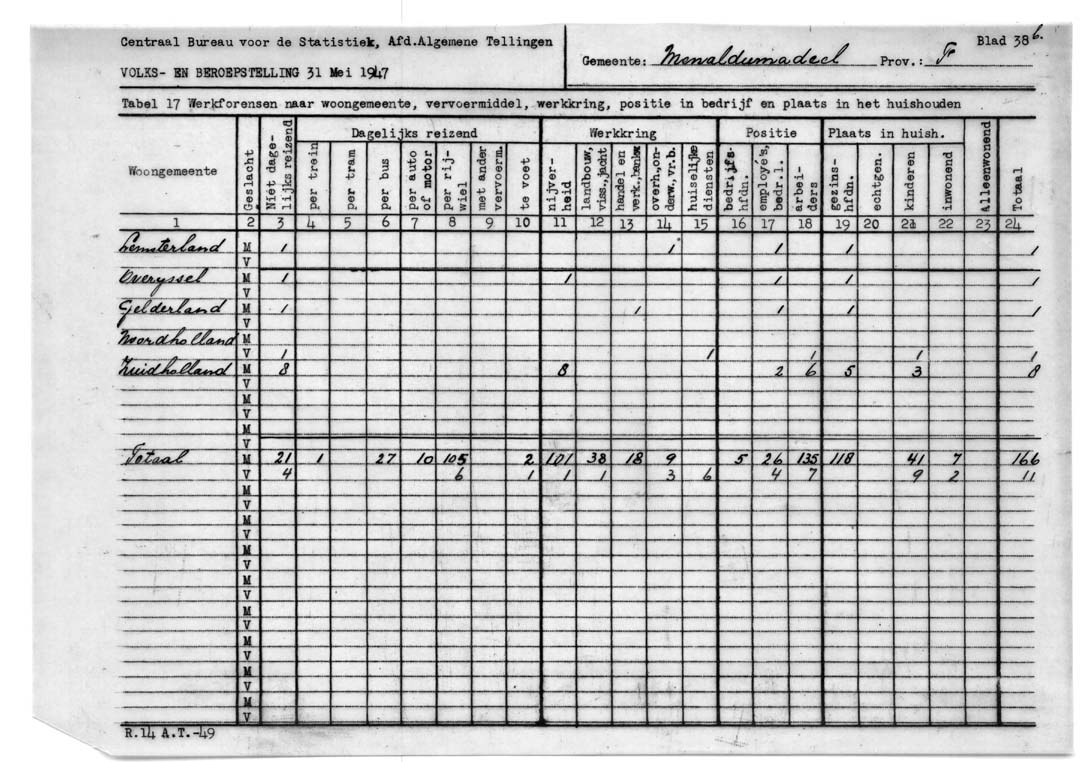 Centraal Bureau voor de Statistiek, Afd.Algemene Tellingen
VOLKS- EN BEROEPSTELLING 31 Mei 1947
Gemeente: Menaldumadeel Prov.: Fr
Blad 38 b.
Tabel 17 Werkforensen naar woongemeente, vervoermiddel, werkkring, positie in bedrijf en plaats in het huishouden
Woongemeente Geslacht Niet dage-lijks reizend Dagelijks reizend Werkkring Positie Plaats in huish. Alleenwonend Totaal
per trein per tram per bus per auto of motor per rij-wiel met ander vervoerm. te voet nijver-heid landbouw, viss.,jacht handel en verk.,bankw overh.,on-derw,vr.b. huiselijke diensten bedrijfs-hfdn. employé's, bedr.l. arbei-ders gezins-hfdn. echtgen. kinderen inwonend
1 2 3 4 5 6 7 8 9 10 11 12 13 14 15 16 17 18 19 20 21 22 23 24
Lemsterland M 1 1 1 1 1
V
Overyssel M 1 1 1 1 1
V
Gelderland M 1 1 1 1 1
V
Noordholland M
V 1 1 1 1 1
Zuidholland M 8 8 2 6 5 3 8
V
M
V
M
V
Totaal M 21 1 27 10 105 2 101 38 18 9 5 26 135 118 41 7 166
V 4 6 1 1 1 3 6 4 7 9 2 11
M
V
M
V
M
V
M
V
M
V
M
V
M
V
M
V
R.14 A.T.-49